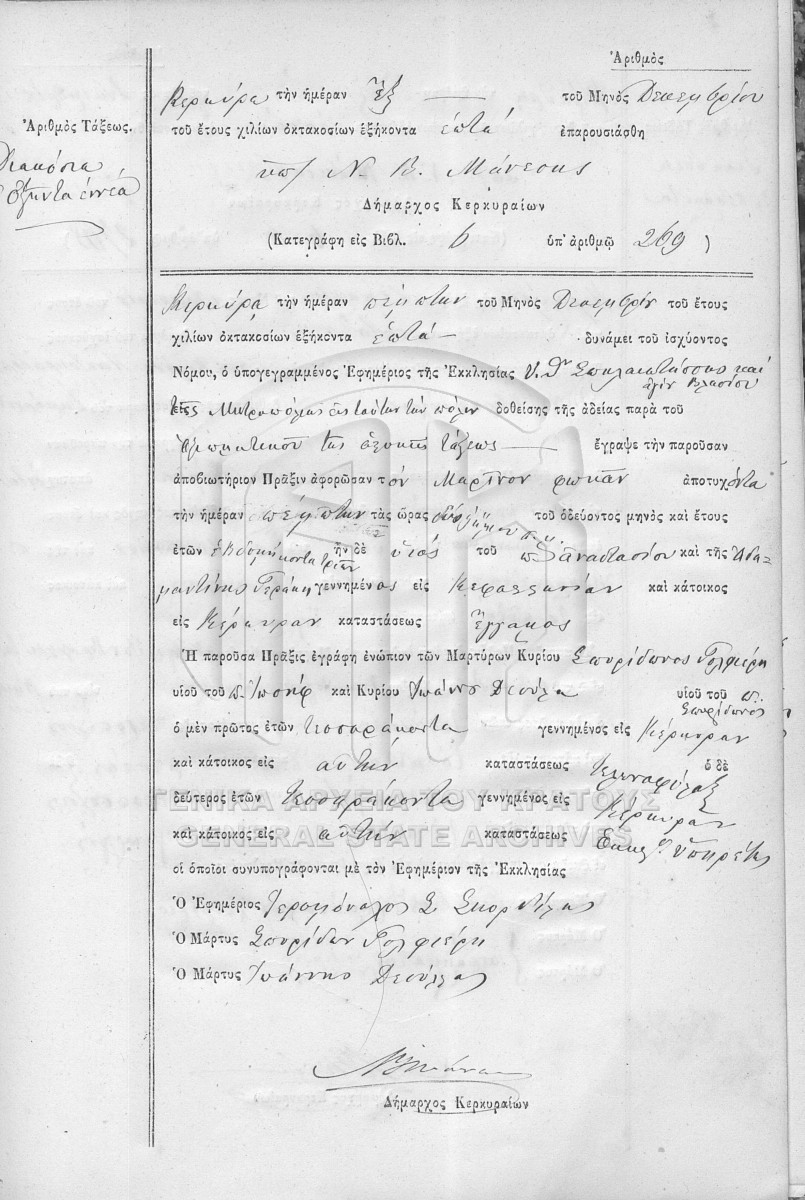 Ἀριθμὸς
Κερκύρα τὴν ἡμέραν ἓξ τοῦ Μηνὸς Δεκεμβρίου
Ἀριθμὸς Τάξεως.
τοῦ ἔτους χιλίων ὀκτακοσίων ἑξήκοντα ἑπτά ἐπαρουσιάσθη
Διακόσια
ἑξῆντα ἐννέα
Ν. Β. Μάνεσης
Δήμαρχος Κερκυραίων
(Κατεγράφη εἰς Βιβλ. 6 ὑπ' ἀριθμῷ 269)
Κερκύρα τὴν ἡμέραν πέμπτην τοῦ Μηνὸς Δεκεμβρίου τοῦ ἔτους
χιλίων ὀκτακοσίων ἑξήκοντα ἑπτά δυνάμει τοῦ ἰσχύοντος
Νόμου, ὁ ὑπογεγραμμένος Ἐφημέριος τῆς Ἐκκλησίας Υ. Θ. Σπηλαιωτίσσης καὶ
ἁγίου Βλασίου
τῆς Μητροπόλεως εἰς ταύτην τὴν πόλιν δοθείσης τῆς ἀδείας παρὰ τοῦ
τῆς τάξεως ἔγραψε τὴν παροῦσαν
ἀποβιωτήριον Πρᾶξιν ἀφορῶσαν τὸν Μαρῖνον Φωκᾶν ἀποτυχόντα
τὴν ἡμέραν πέμπτην τὰς ὥρας τοῦ ὁδεύοντος μηνὸς καὶ ἔτους
ἐτῶν ἑβδομήκοντα τριῶν ἦν δὲ υἱός τοῦ π. Ἀναστασίου καὶ τῆς Ἀδα-
μαντίνης Γεράκη γεννημένος εἰς Κεφαλληνίαν καὶ κάτοικος
εἰς Κέρκυραν καταστάσεως ἔγγαμος
Ἡ παροῦσα Πρᾶξις ἐγράφη ἐνώπιον τῶν Μαρτύρων Κυρίου Σπυρίδωνος Γολφιέρη
υἱοῦ τοῦ π. Ἰωσήφ καὶ Κυρίου Ἰωάννη Δεούλα υἱοῦ τοῦ π.
Σπυρίδωνος
ὁ μὲν πρῶτος ἐτῶν τεσσαράκοντα γεννημένος εἰς Κέρκυραν
καὶ κάτοικος εἰς αὐτήν καταστάσεως ὁ δὲ
δεύτερος ἐτῶν τεσσαράκοντα γεννημένος εἰς Κέρκυραν
καὶ κάτοικος εἰς αὐτήν καταστάσεως Ἐκκλ. ὑπηρέτης
οἱ ὁποῖοι συνυπογράφονται μὲ τὸν Ἐφημέριον τῆς Ἐκκλησίας
Ὁ Ἐφημέριος Ἱερομόναχος Σ. Σκορδίλης
Ὁ Μάρτυς Σπυρίδων Γολφιέρη
Ὁ Μάρτυς Ἰωάννης Δεούλλας
Δήμαρχος Κερκυραίων
ΓΕΝΙΚΑ ΑΡΧΕΙΑ ΤΟΥ ΚΡΑΤΟΥΣ
GENERAL STATE ARCHIVES